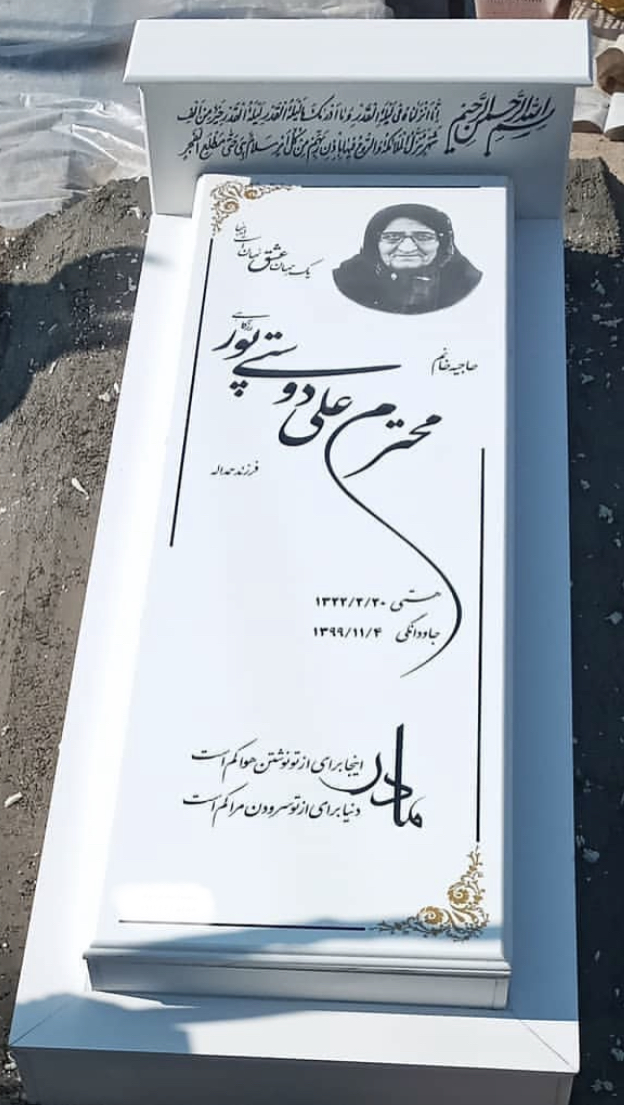 بسم الله الرحمن الرحیم
إنا أنزلناه فی لیلة القدر و ما أدراک ما لیلة القدر لیلة القدر خیر من ألف
شهر تنزل الملائکة و الروح فیها بإذن ربهم من کل أمر سلام هی حتی مطلع الفجر
یک جهان عشق نهان است اینجا
حاجیه خانم
محترم علی دوستی پور
فرزند حمداله
هستی ۱۳۲۲/۲/۲۰
جاودانگی ۱۳۹۹/۱۱/۴
مادر
اینجا برای از تو نوشتن هوا کم است
دنیا برای از تو سرودن مرا کم است